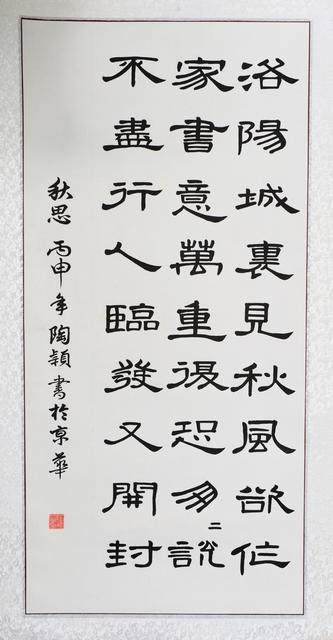 洛陽城裏見秋風欲作
家書意萬重復恐匆二說
不盡行人臨發又開封
秋思 丙申年陶穎書於京華